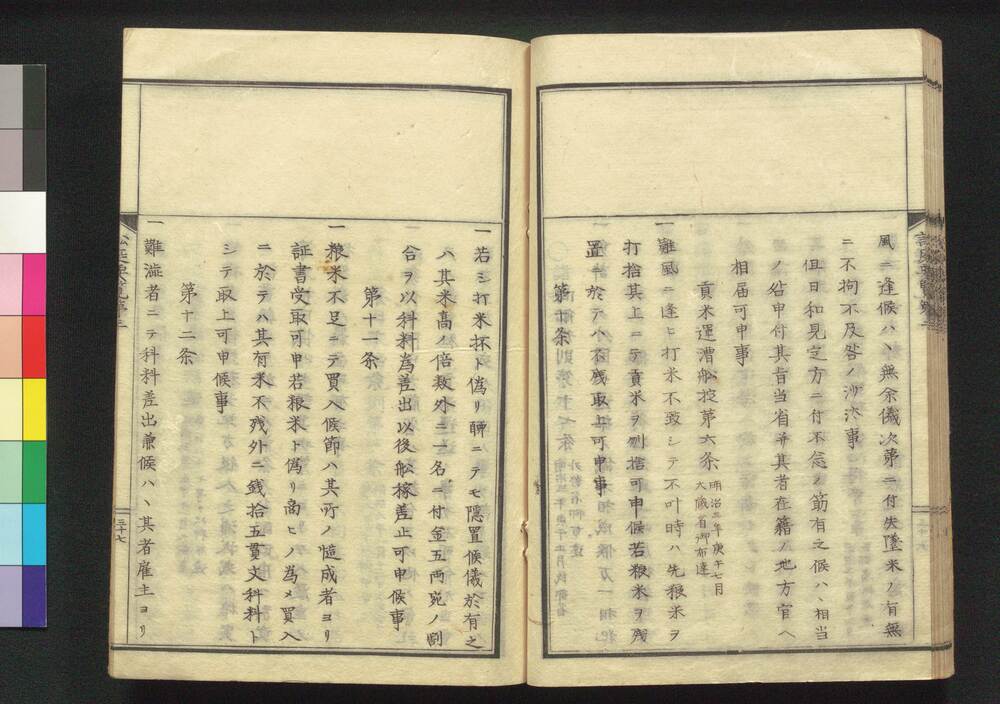 風ニ逢候ハヽ無余儀次第ニ付失墜米ノ有無
ニ不拘不及咎ノ沙汰事
但日和見定方ニ付不念ノ筋有之候ハヽ相当
ノ咎申付其旨当省并其者在籍ノ地方官ヘ
相届可申事
貢米運漕船掟第六条 明治三年庚午七月
大蔵省御布達
一難風ニ逢ヒ打米不致シテ不叶時ハ先粮米ヲ
打捨其上ニテ貢米ヲ刎捨可申候若粮米ヲ残
置 於テハ不残取上可申事
第 条
一若シ打米抔ト偽リ聊ニテモ隠置候儀於有之
ハ其米高ノ倍数外ニ一名ニ付金五両宛ノ割
合ヲ以科料為差出以後船稼差止可申候事
第十一条
一粮米不足ニテ買入候節ハ其所ノ慥成者ヨリ
証書受取可申若粮米ト偽リ商ヒノ為メ買入
ニ於テハ其有米不残外ニ銭拾五貫文科料ト
シテ取上可申候事
第十二条
一難澁者ニテ科料差出兼候ハヽ其者雇主ヨリ
三十七